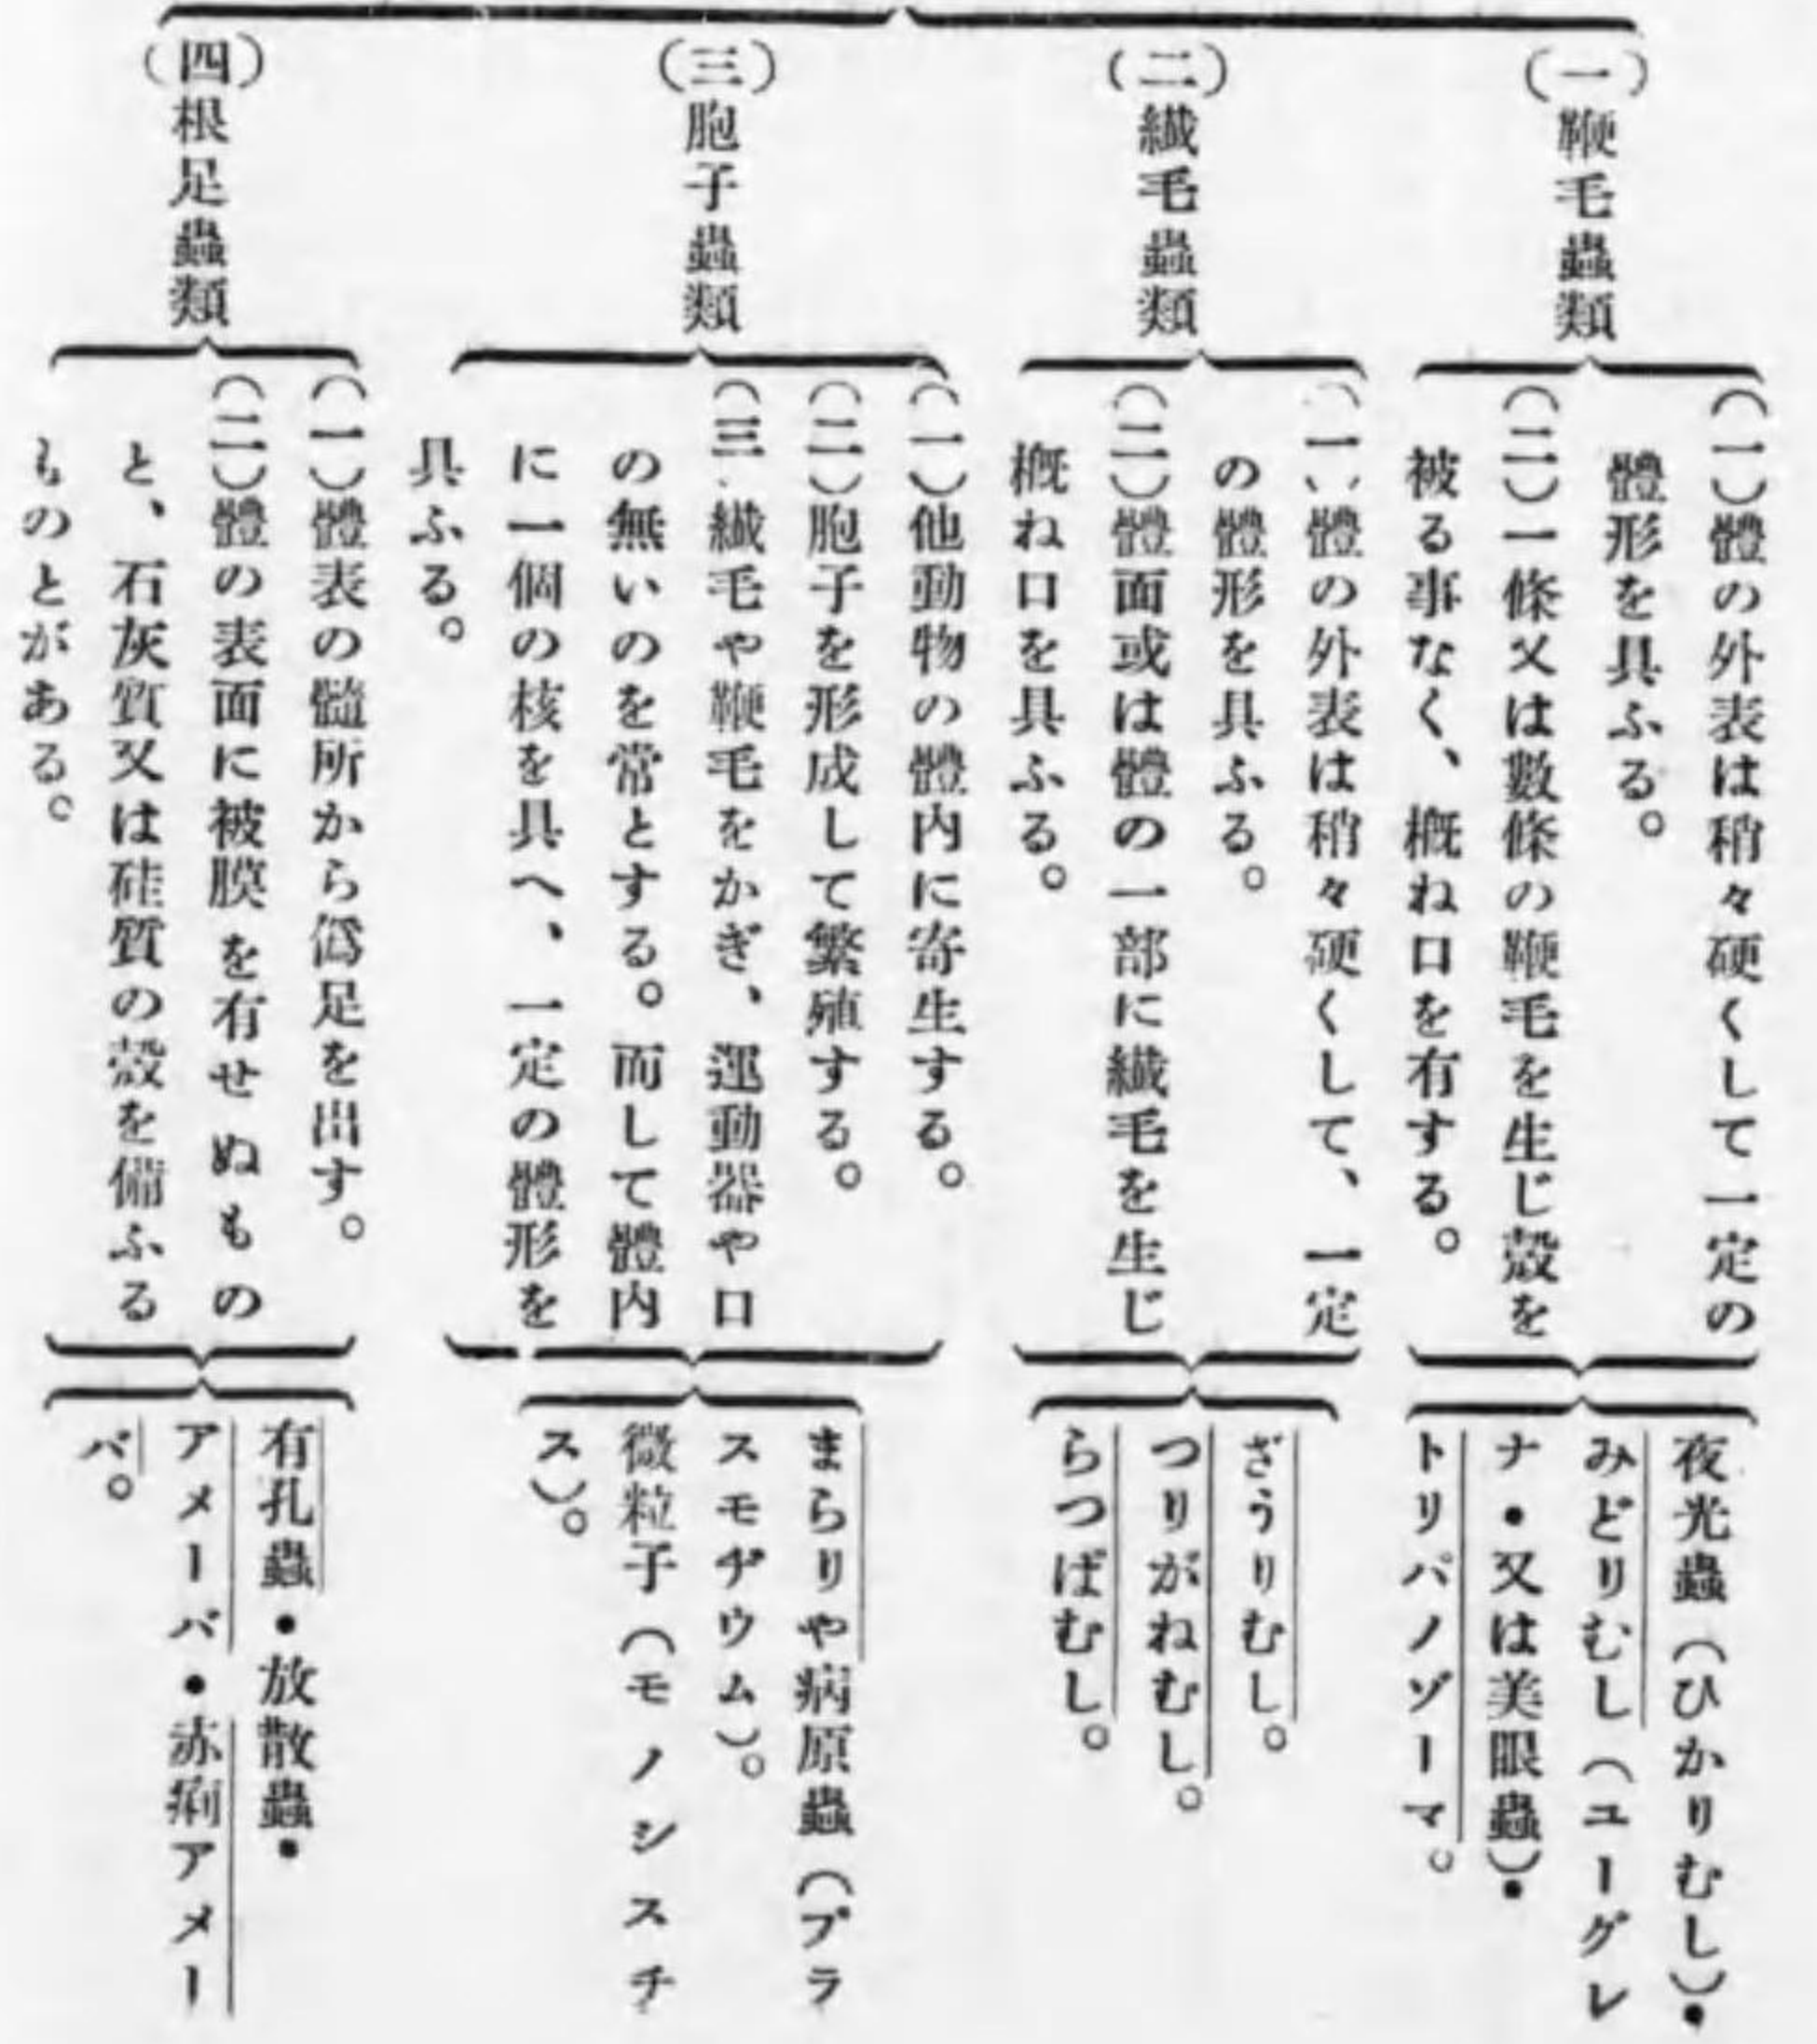 （一）鞭毛蟲類
（一）體の外表は稍々硬くして一定の
體形を具ふる。
（二）一條又は數條の鞭毛を生じ殼を
被る事なく、概ね口を有する。
夜光蟲（ひかりむし）・
みどりむし（ユーグレ
ナ・又は美眼蟲）・
トリパノゾーマ。
（二）纎毛蟲類
（一）體の外表は稍々硬くして、一定
の體形を具ふる。
（二）體面或は體の一部に纎毛を生じ
概ね口を具ふる。
ざうりむし。
つりがねむし。
らつぱむし。
（三）胞子蟲類
（一）他動物の體内に寄生する。
（二）胞子を形成して繁殖する。
（三 纎毛や鞭毛をかぎ、運動器や口
の無いのを常とする。而して體内
に一個の核を具へ、一定の體形を
具ふる。
まらりや病原蟲（プラ
スモヂウム）。
微粒子（モノシスチ
ス）。
（四）根足蟲類
（一）體表の髓所から僞足を出す。
（二）體の表面に被膜を有せぬもの
と、石灰質又は硅質の殼を備ふる
ものとがある。
有孔蟲・放散蟲・
アメーバ・赤痢アメー
バ。